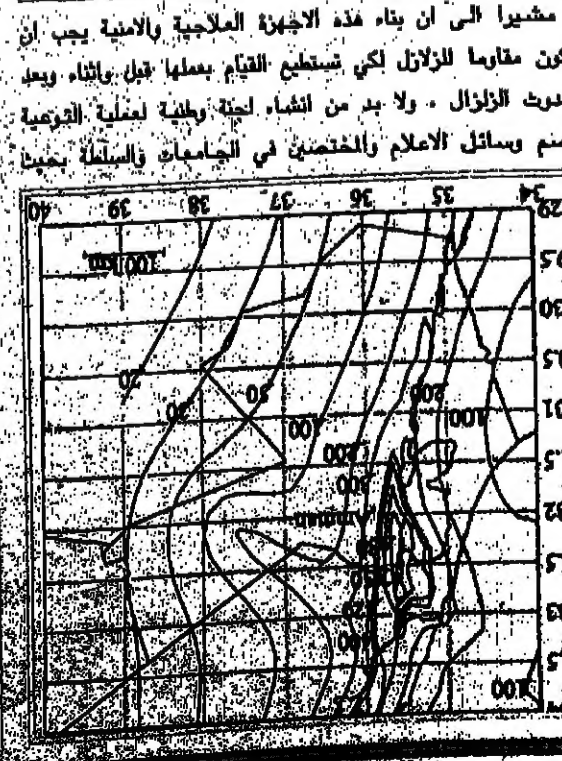 مشيرا الى ان بناء هذه الاجهزة العلاجية والامنية يجب ان
كون مقاوما للزلازل لكي تستطيع القيام بعملها قبل واثناء وبعد
دوث الزلزال ، ولا بد من انشاء لجنة وطنية لعملية التوعية
ضم وسائل الاعلام والمختصين في الجامعات والسلطة بحيث
40 39 38 37 36 35 34
29
100 km
30
20 30 50 100 200 100
31
200
300
32
33
100